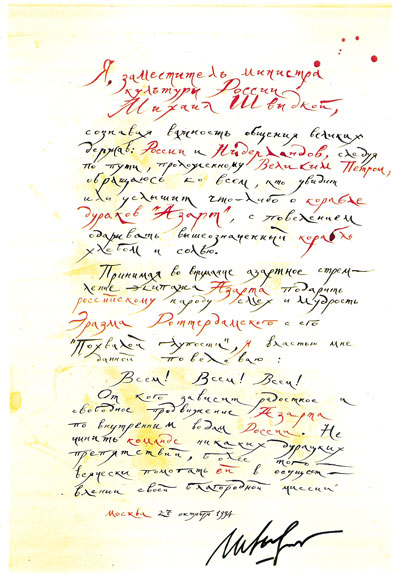 Я, заместитель министра
культуры России
Михаил Швыдкой,
сознавая важность общения великих
держав: России и Нидерландов, следуя
по пути, проложенному Великим Петром,
обращаюсь ко всем, кто увидит
или услышит что-либо о корабле
дураков "Азарт", с повелением
одаривать вышеозначенный корабль
хлебом и солью.
Принимая во внимание азартное стрем-
ление экипажа Азарта подарить
российскому народу смех и мудрость
Эразма Роттердамского с его
"Похвалой глупости", я властью мне
данной повелеваю:
Всем! Всем! Всем!
От кого зависит радостное и
свободное продвижение Азарта
по внутренним водам России. Не
чинить команде никаких дурацких
препятствий, более того
всячески помогать ей в осущест-
влении своей благородной миссии
Москва 27 октября 1994